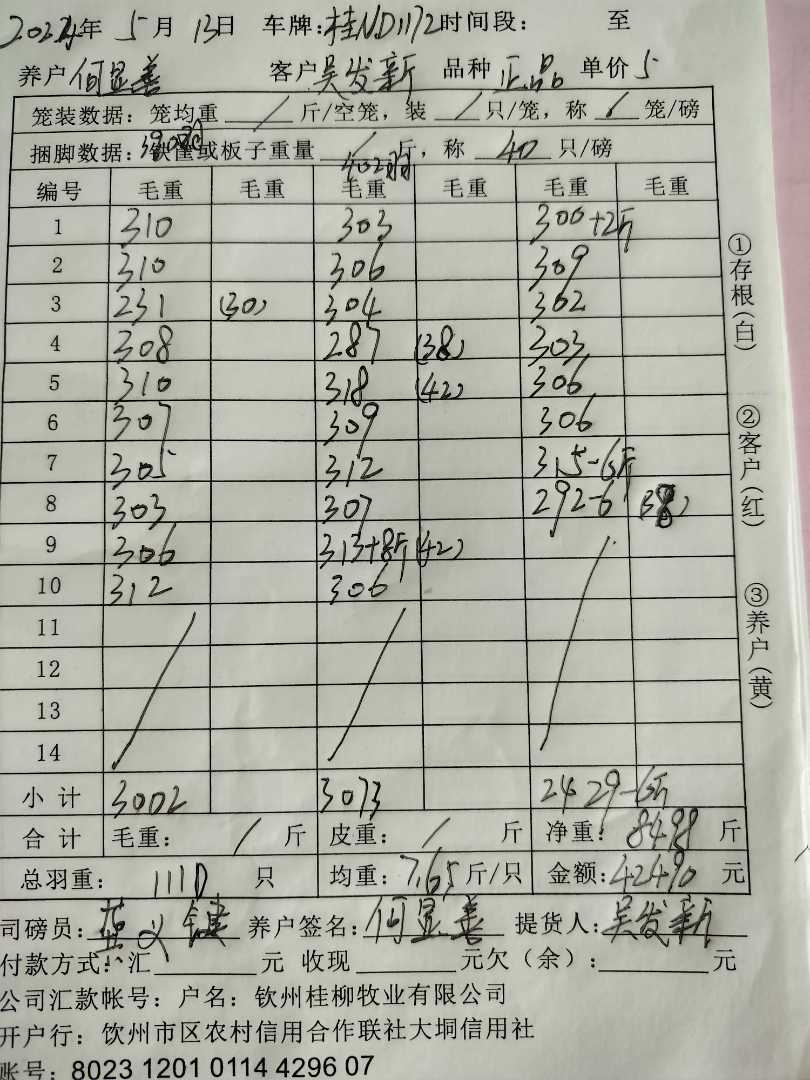 2024年 5月 13日 车牌:桂ND1172时间段: 至
养户何显善 客户吴发新 品种 正品 单价 5
笼装数据: 笼均重 / 斤/空笼, 装 / 只/笼, 称 / 笼/磅
390羽
捆脚数据: 铁筐或板子重量 / 斤, 称 40 只/磅
402羽
编号 毛重 毛重 毛重 毛重 毛重 毛重
1 310 303 300+2斤
2 310 306 309
3 231 (30) 304 302
4 308 287 (38) 303
5 310 318 (42) 306
6 307 309 306
7 305 312 315-6斤
8 303 307 292-6 (38)
9 306 313+8斤 (42)
10 312 306
11
12
13
14
小计 3002 3073 2429-6斤
合计 毛重: / 斤 皮重: / 斤 净重: 8498 斤
总羽重: 1110 只 均重: 7.65 斤/只 金额: 42490 元
司磅员: 义 养户签名: 何显善 提货人: 吴发新
付款方式: 汇 元 收现 元欠(余): 元
公司汇款帐号: 户名: 钦州桂柳牧业有限公司
开户行: 钦州市区农村信用合作联社大垌信用社
账号: 8023 1201 0114 4296 07
①存根(白)
②客户(红)
③养户(黄)